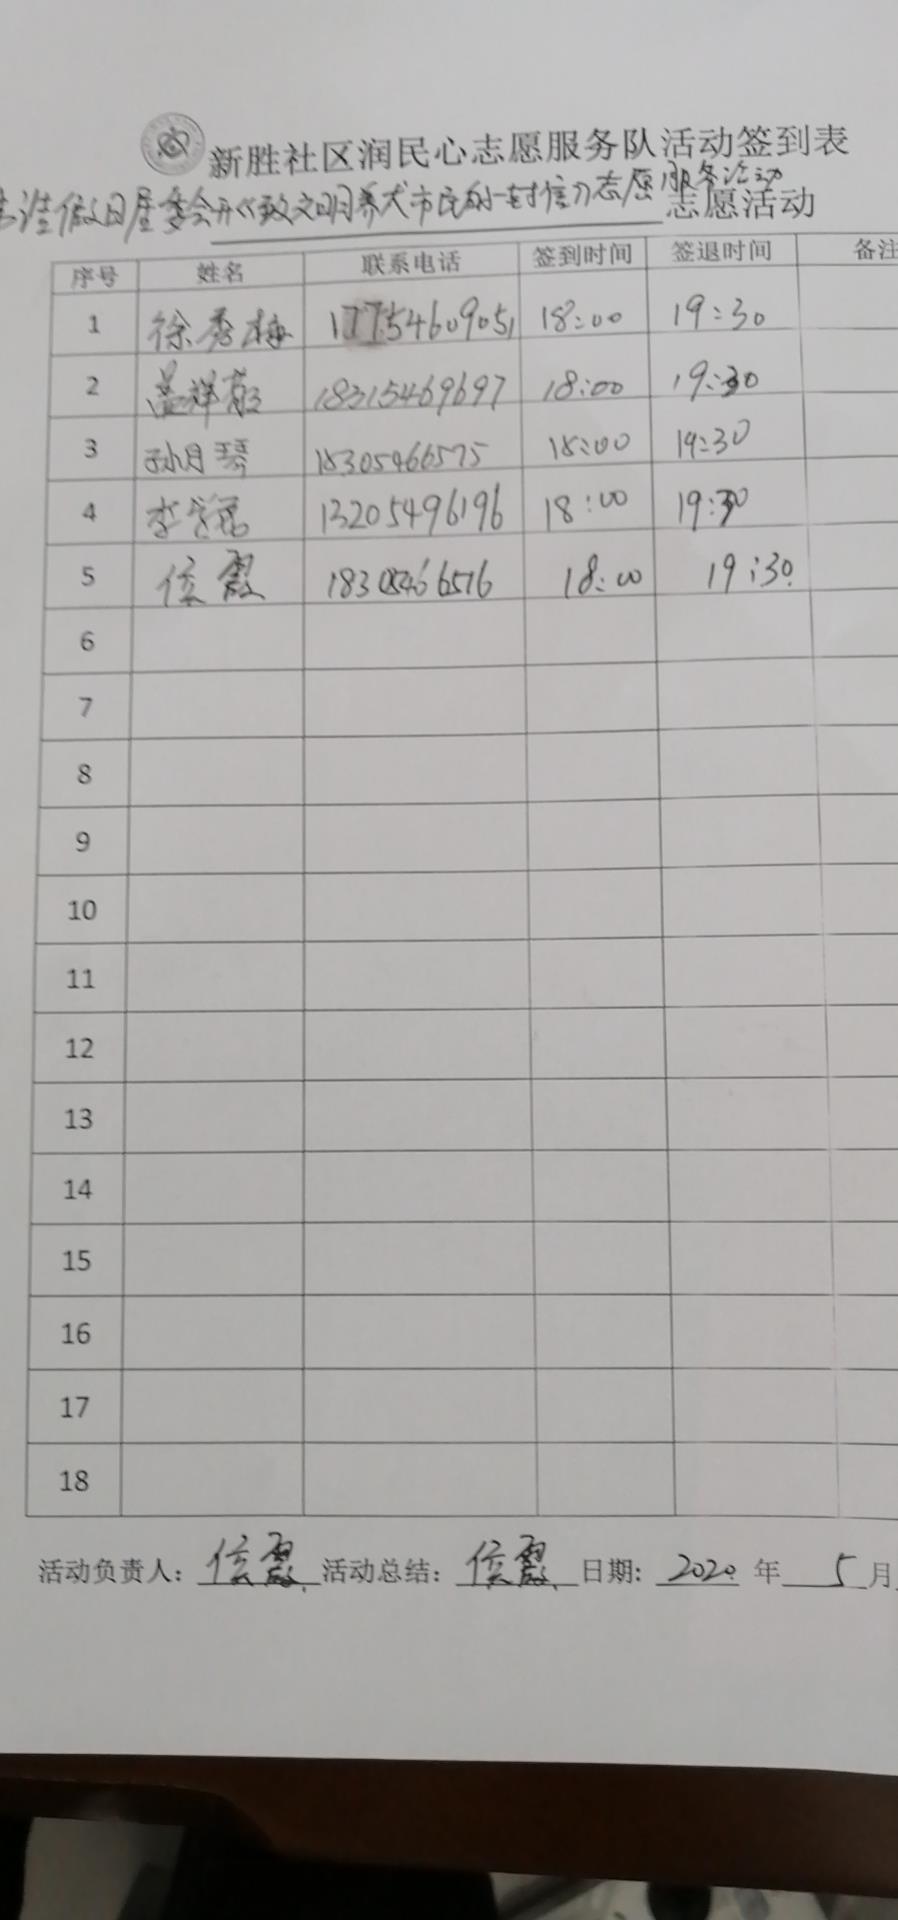 新胜社区润民心志愿服务队活动签到表
假日居委会开《致文明养犬市民的一封信》志愿服务活动 志愿活动
序号 姓名 联系电话 签到时间 签退时间 备注
1 徐秀梅 17754609051 18:00 19:30
2 18315469697 18:00 19:30
3 孙月琴 18305466575 18:00 19:30
4 李 13205496196 18:00 19:30
5 信霞 18305466516 18:00 19:30
6
7
8
9
10
11
12
13
14
15
16
17
18
活动负责人: 信霞 活动总结: 信霞 日期: 2020 年 5 月